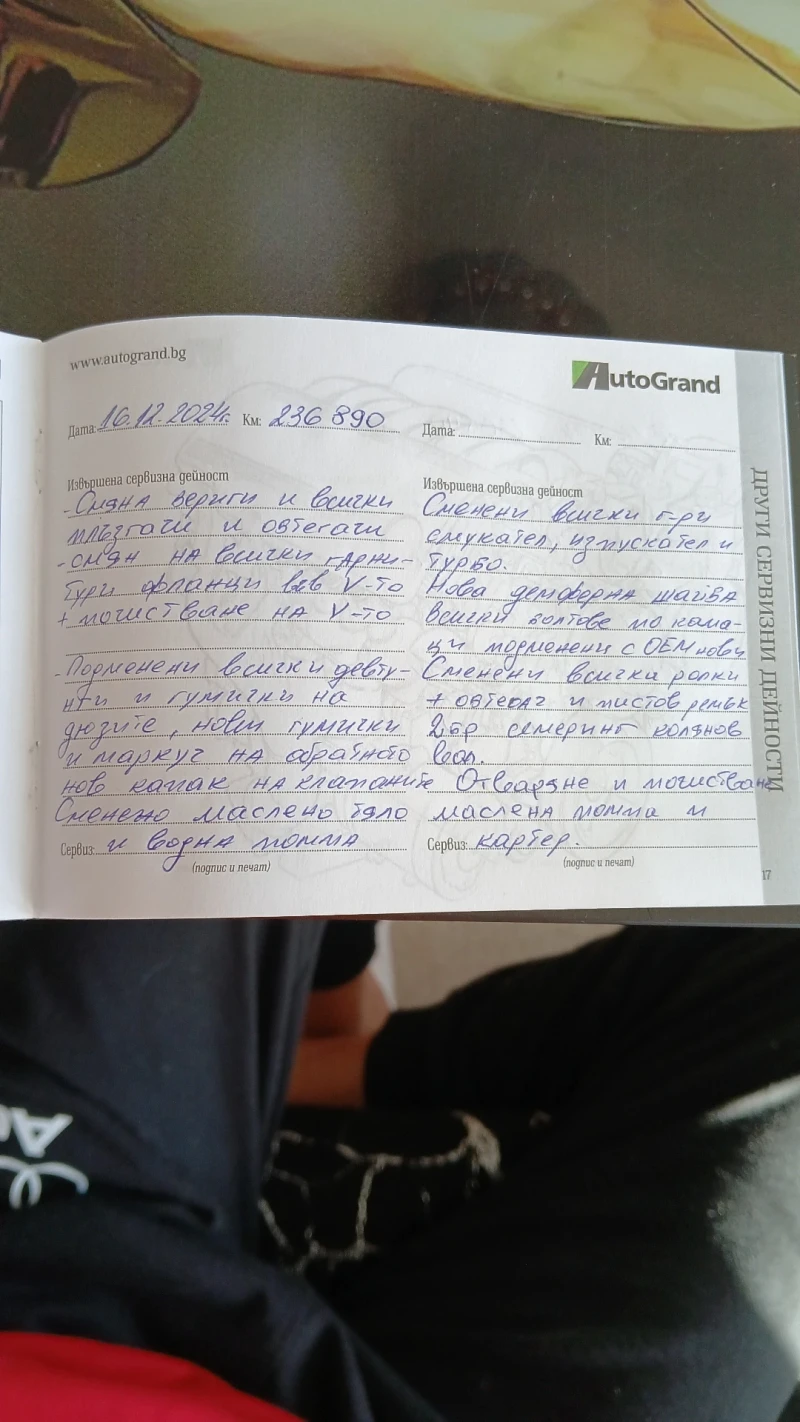 www.autogrand.bg
AutoGrand
Дата: 16.12.2024г. Км: 236 890
Извършена сервизна дейност
- Смяна вериги и всички
плъзгачи и обтегачи
- смян на всички гарни-
тури фланци във V-то
+ почистване на V-то
- Подменени всички девту-
нги и гумички на
дюзите, нови гумички
и маркуч на обратното
нов капак на клапаните
Сменено маслено тяло
Сервиз: и водна помпа
(подпис и печат)
Дата: Км:
Извършена сервизна дейност
Сменени всички г-ри
смукател, изпускател и
турбо.
Нова демферна шайба
всички болтове по кама-
ци подменени с OEM нови
Сменени всички ролки
+ обтегач и пистов ремък
2бр семеринг колянов
вал.
Отваряне и почистване
маслена помпа и
Сервиз: картер.
(подпис и печат)
ДРУГИ СЕРВИЗНИ ДЕЙНОСТИ
17